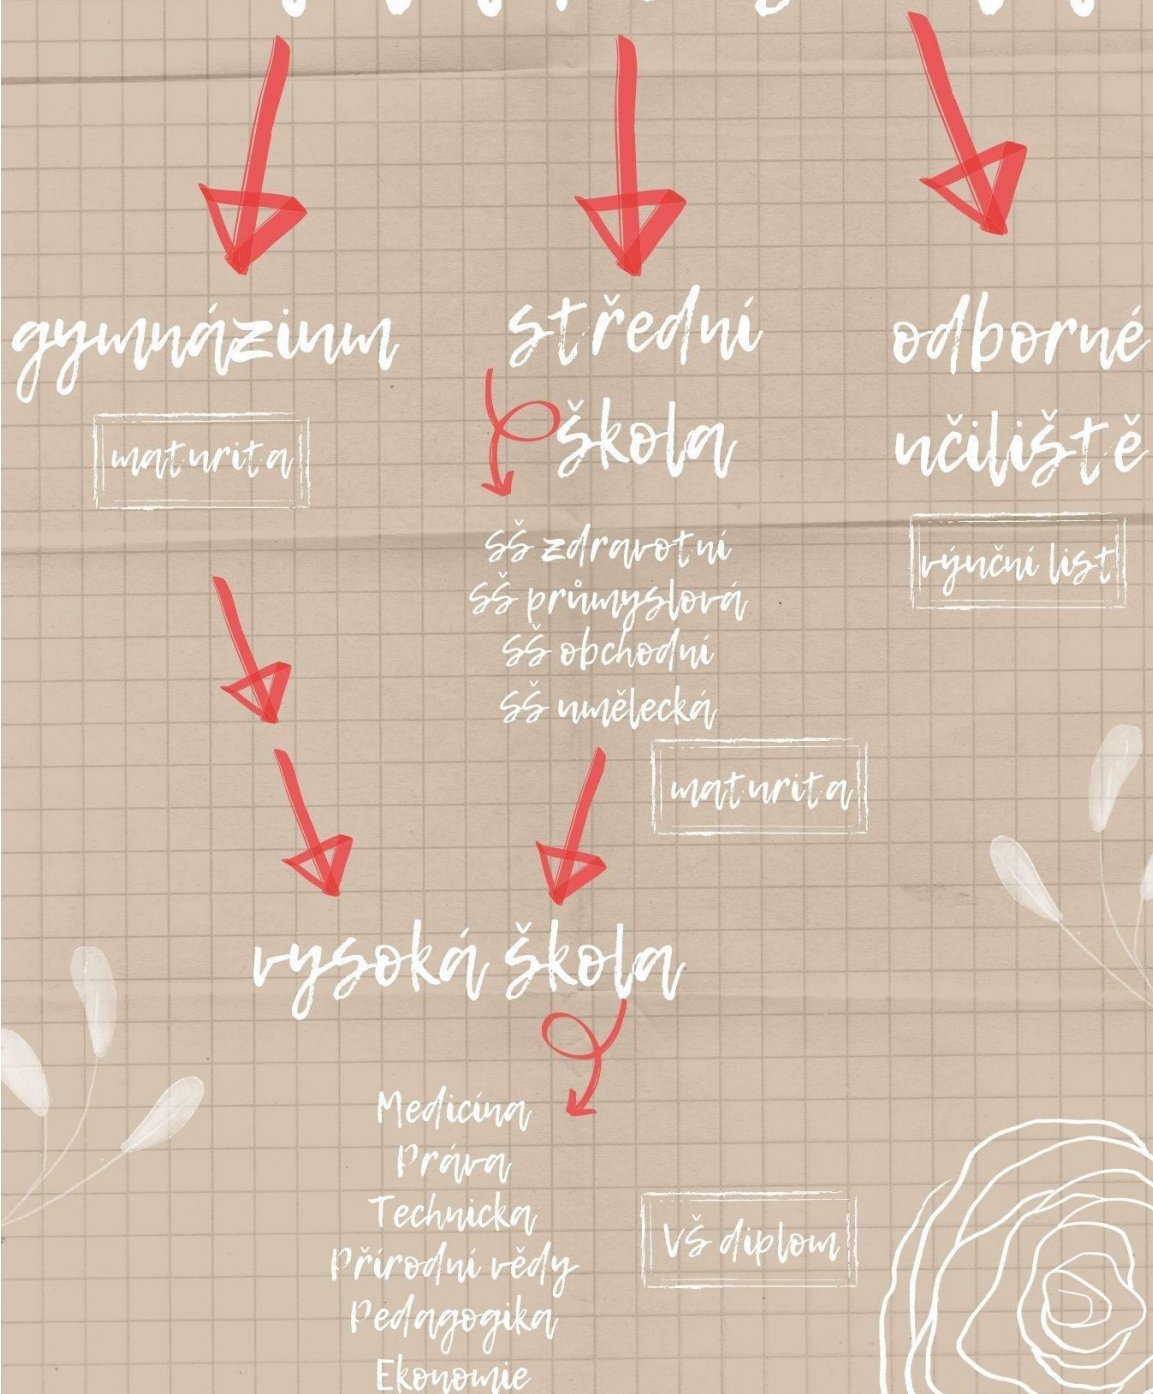 gymnázium
maturita
střední
škola
SŠ zdravotní
SŠ průmyslová
SŠ obchodní
SŠ umělecká
maturita
odborné
učiliště
výuční list
vysoká škola
Medicína
Práva
Technicka
Přírodní vědy
Pedagogika
Ekonomie
VŠ diplom